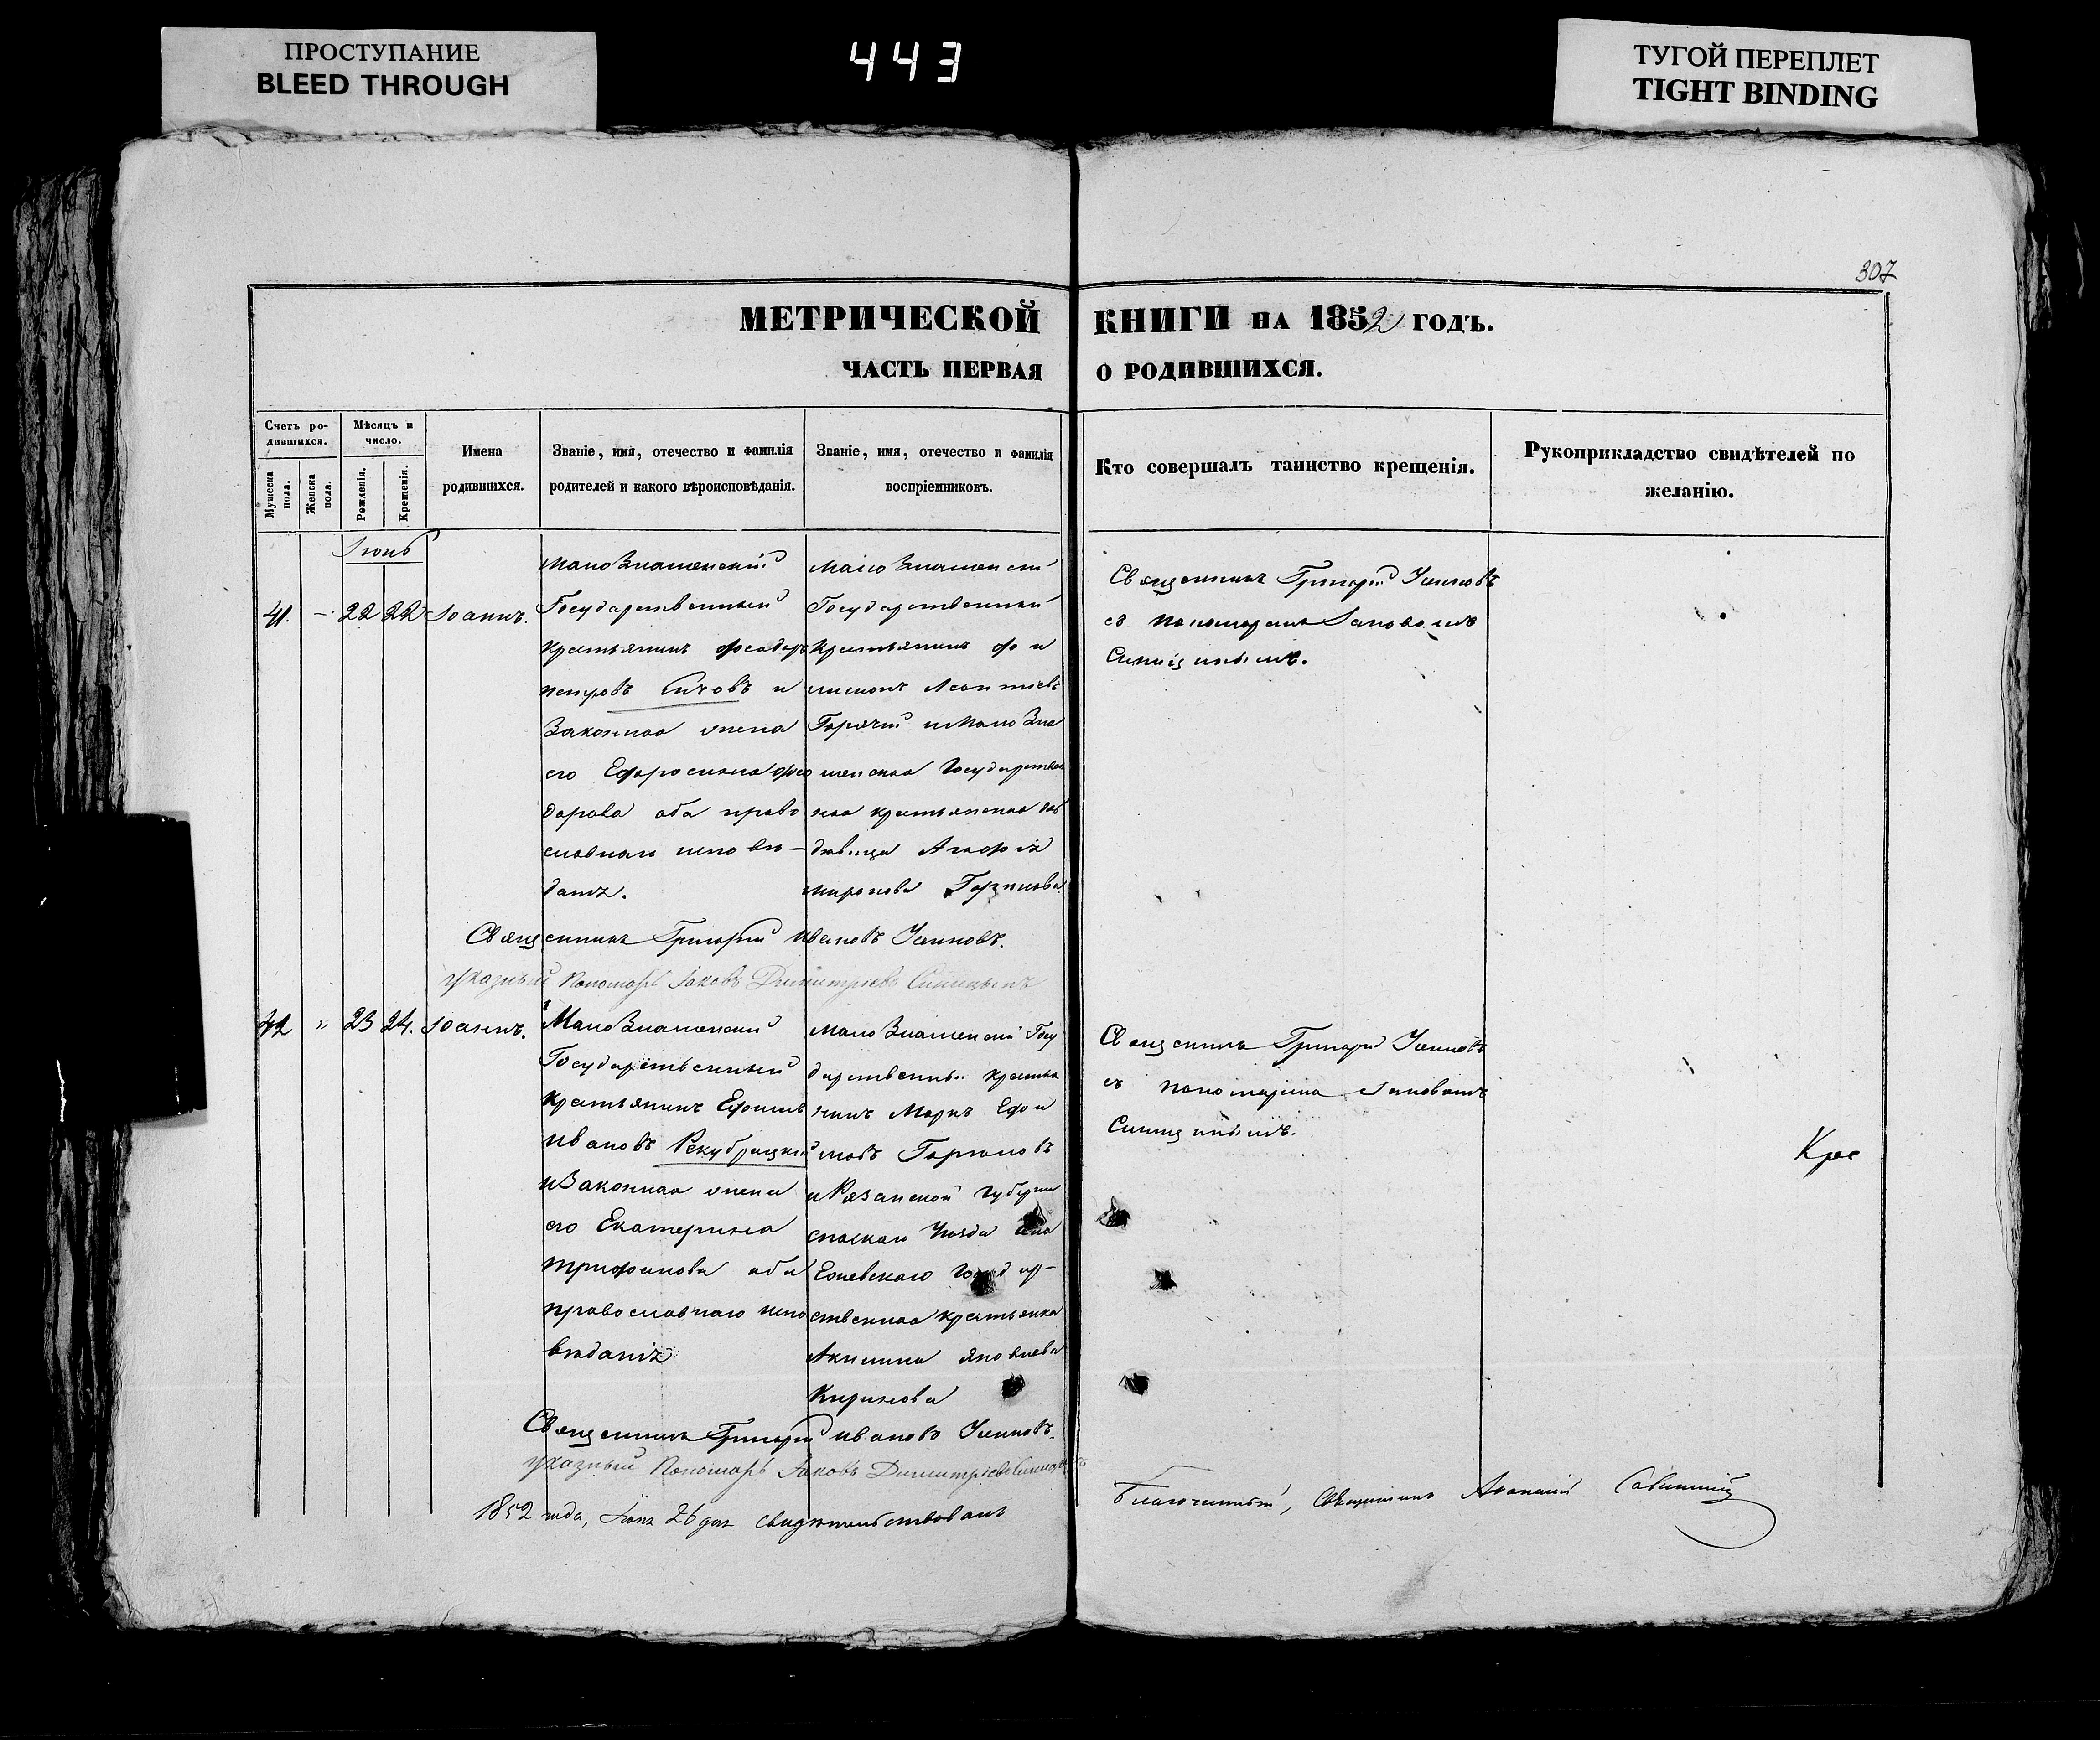 ПРОСТУПАНИЕ
BLEED THROUGH
443
ТУГОЙ ПЕРЕПЛЕТ
TIGHT BINDING
307
МЕТРИЧЕСКОЙ КНИГИ НА 1852 ГОДЪ.
ЧАСТЬ ПЕРВАЯ О РОДИВШИХСЯ.
Счетъ ро-
дившихся.
Мужеска пола.
Женска пола.
Мѣсяцъ и
число.
Рожденія.
Крещенія.
Имена
родившихся.
Званіе, имя, отечество и фамилія
родителей и какого вѣроисповѣданія.
Званіе, имя, отечество и фамилія
воспріемниковъ.
Кто совершалъ таинство крещенія.
Рукоприкладство свидѣтелей по
желанію.
Іюнь
41. – 22 22 Іоаннъ.
МалоЗнаменский
Государственный
крестьянинъ Феодоръ
Петровъ и
Законная жена
его Ефросинна Фео
дорова оба право
славнаго исповѣ-
данія.
МалоЗнаменский
Государственный
крестьянинъ Фи
лимонъ Леонтіевъ
Горячий и МалоЗна
менская Государствен
ная крестьянская
дѣвица Агафія
Миронова
Священникъ Григорий
съ пономаремъ Іаковомъ
Синицынымъ.
Священникъ Григорий Ивановъ
указный Пономарь Іаковъ Димитріевъ Синицынъ
42 " 23 24. Іоаннъ.
МалоЗнаменский
Государственный
крестьянинъ Ефимъ
Ивановъ Рекубрацкий
и Законная жена
его Екатерина
Трифонова оба
православнаго испо
вѣданія
МалоЗнаменский Госу
дарственный крестья
нинъ Маркъ Ефи
мовъ Горюновъ
и Рязанской губернии
спаскаго Уезда села
Государ-
ственная крестьянка
Акилина Яковлева
Кирикова
Священникъ Григорий
съ пономаремъ Іаковомъ
Синицынымъ.
Крес
Священникъ Григорий Ивановъ
указный Пономарь Іаковъ Димитріевъ Синицынъ
1852 года, Іюня 26 дня свидѣтельствовалъ
Благочинный, Священникъ Савицкий